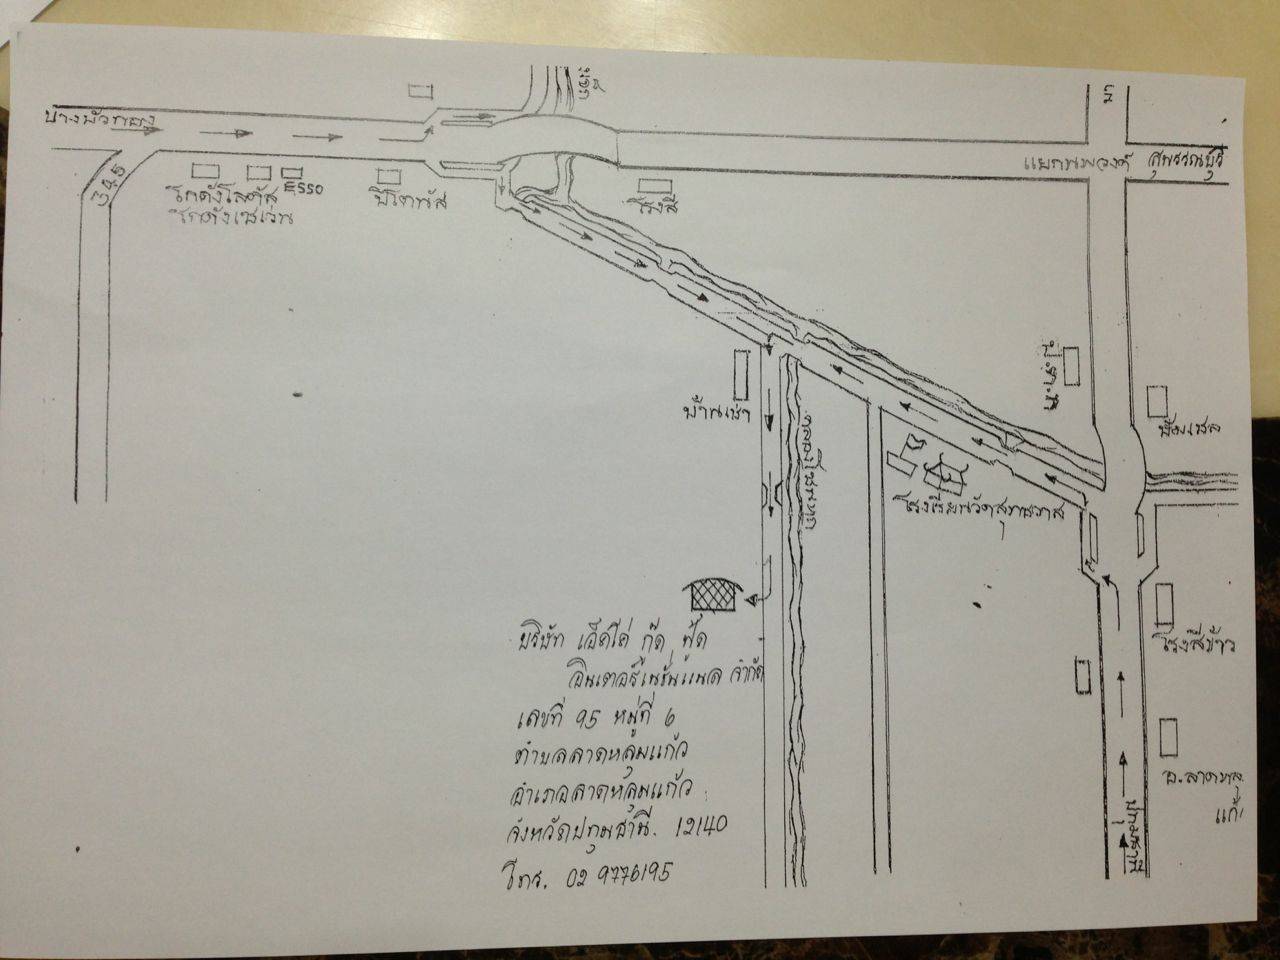 บางบัวทอง
345
โกดังโลตัส
โกดังเซเว่น
ESSO
วัง
แยกนพวงศ์
สุพรรณบุรี
ป.ต.ท
ปั๊มเชล
บ้านเช่า
คลอง
โรงเรียนวัดสุทธาวาส
โรงสีข้าว
อ.ลาดหลุมแก้ว
ปทุมธานี
บริษัท เอ็คโค่ กู๊ด ฟู้ด
อินเตอร์เนชั่นแนล จำกัด
เลขที่ 95 หมู่ที่ 6
ตำบลลาดหลุมแก้ว
อำเภอลาดหลุมแก้ว
จังหวัดปทุมธานี. 12140
โทร. 02 9776195